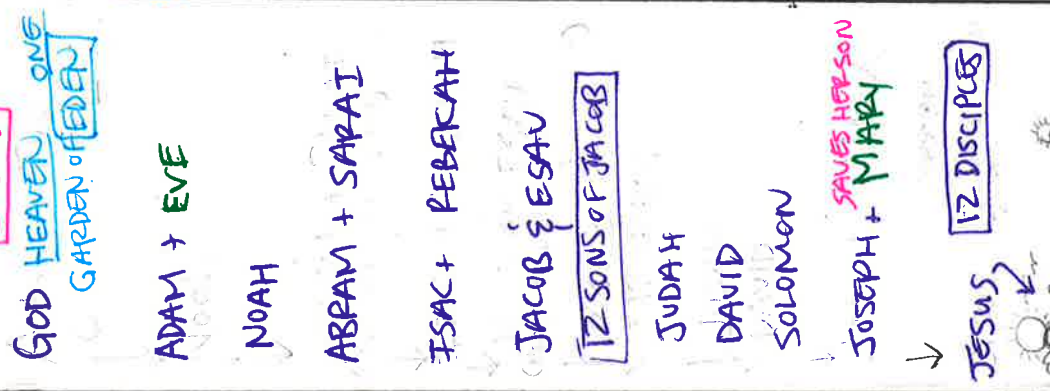 GOD HEAVEN ONE
GARDEN OF EDEN
ADAM + EVE
NOAH
ABRAM + SARAI
ISAC + REBEKAH
JACOB & ESAU
12 SONS OF JACOB
JUDAH
DAVID
SOLOMON
SAVES HER SON
JOSEPH + MARY
JESUS
12 DISCIPLES